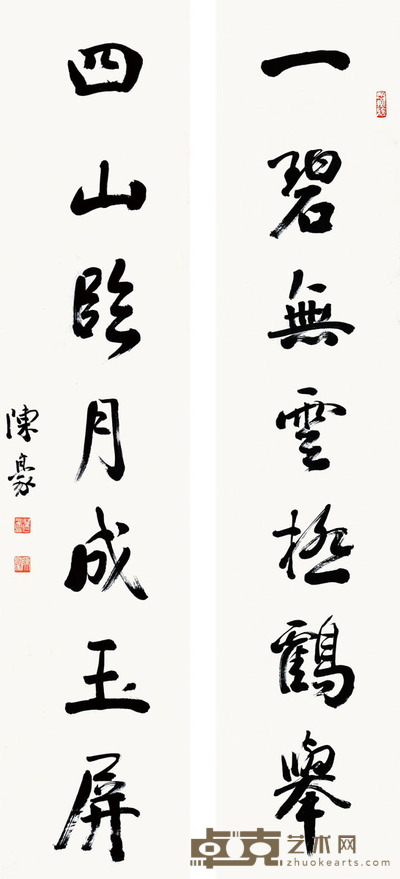 一碧無雲極鶴舉
四山臨月成玉屏
陳豪
卓克艺术网
zhuokearts.com